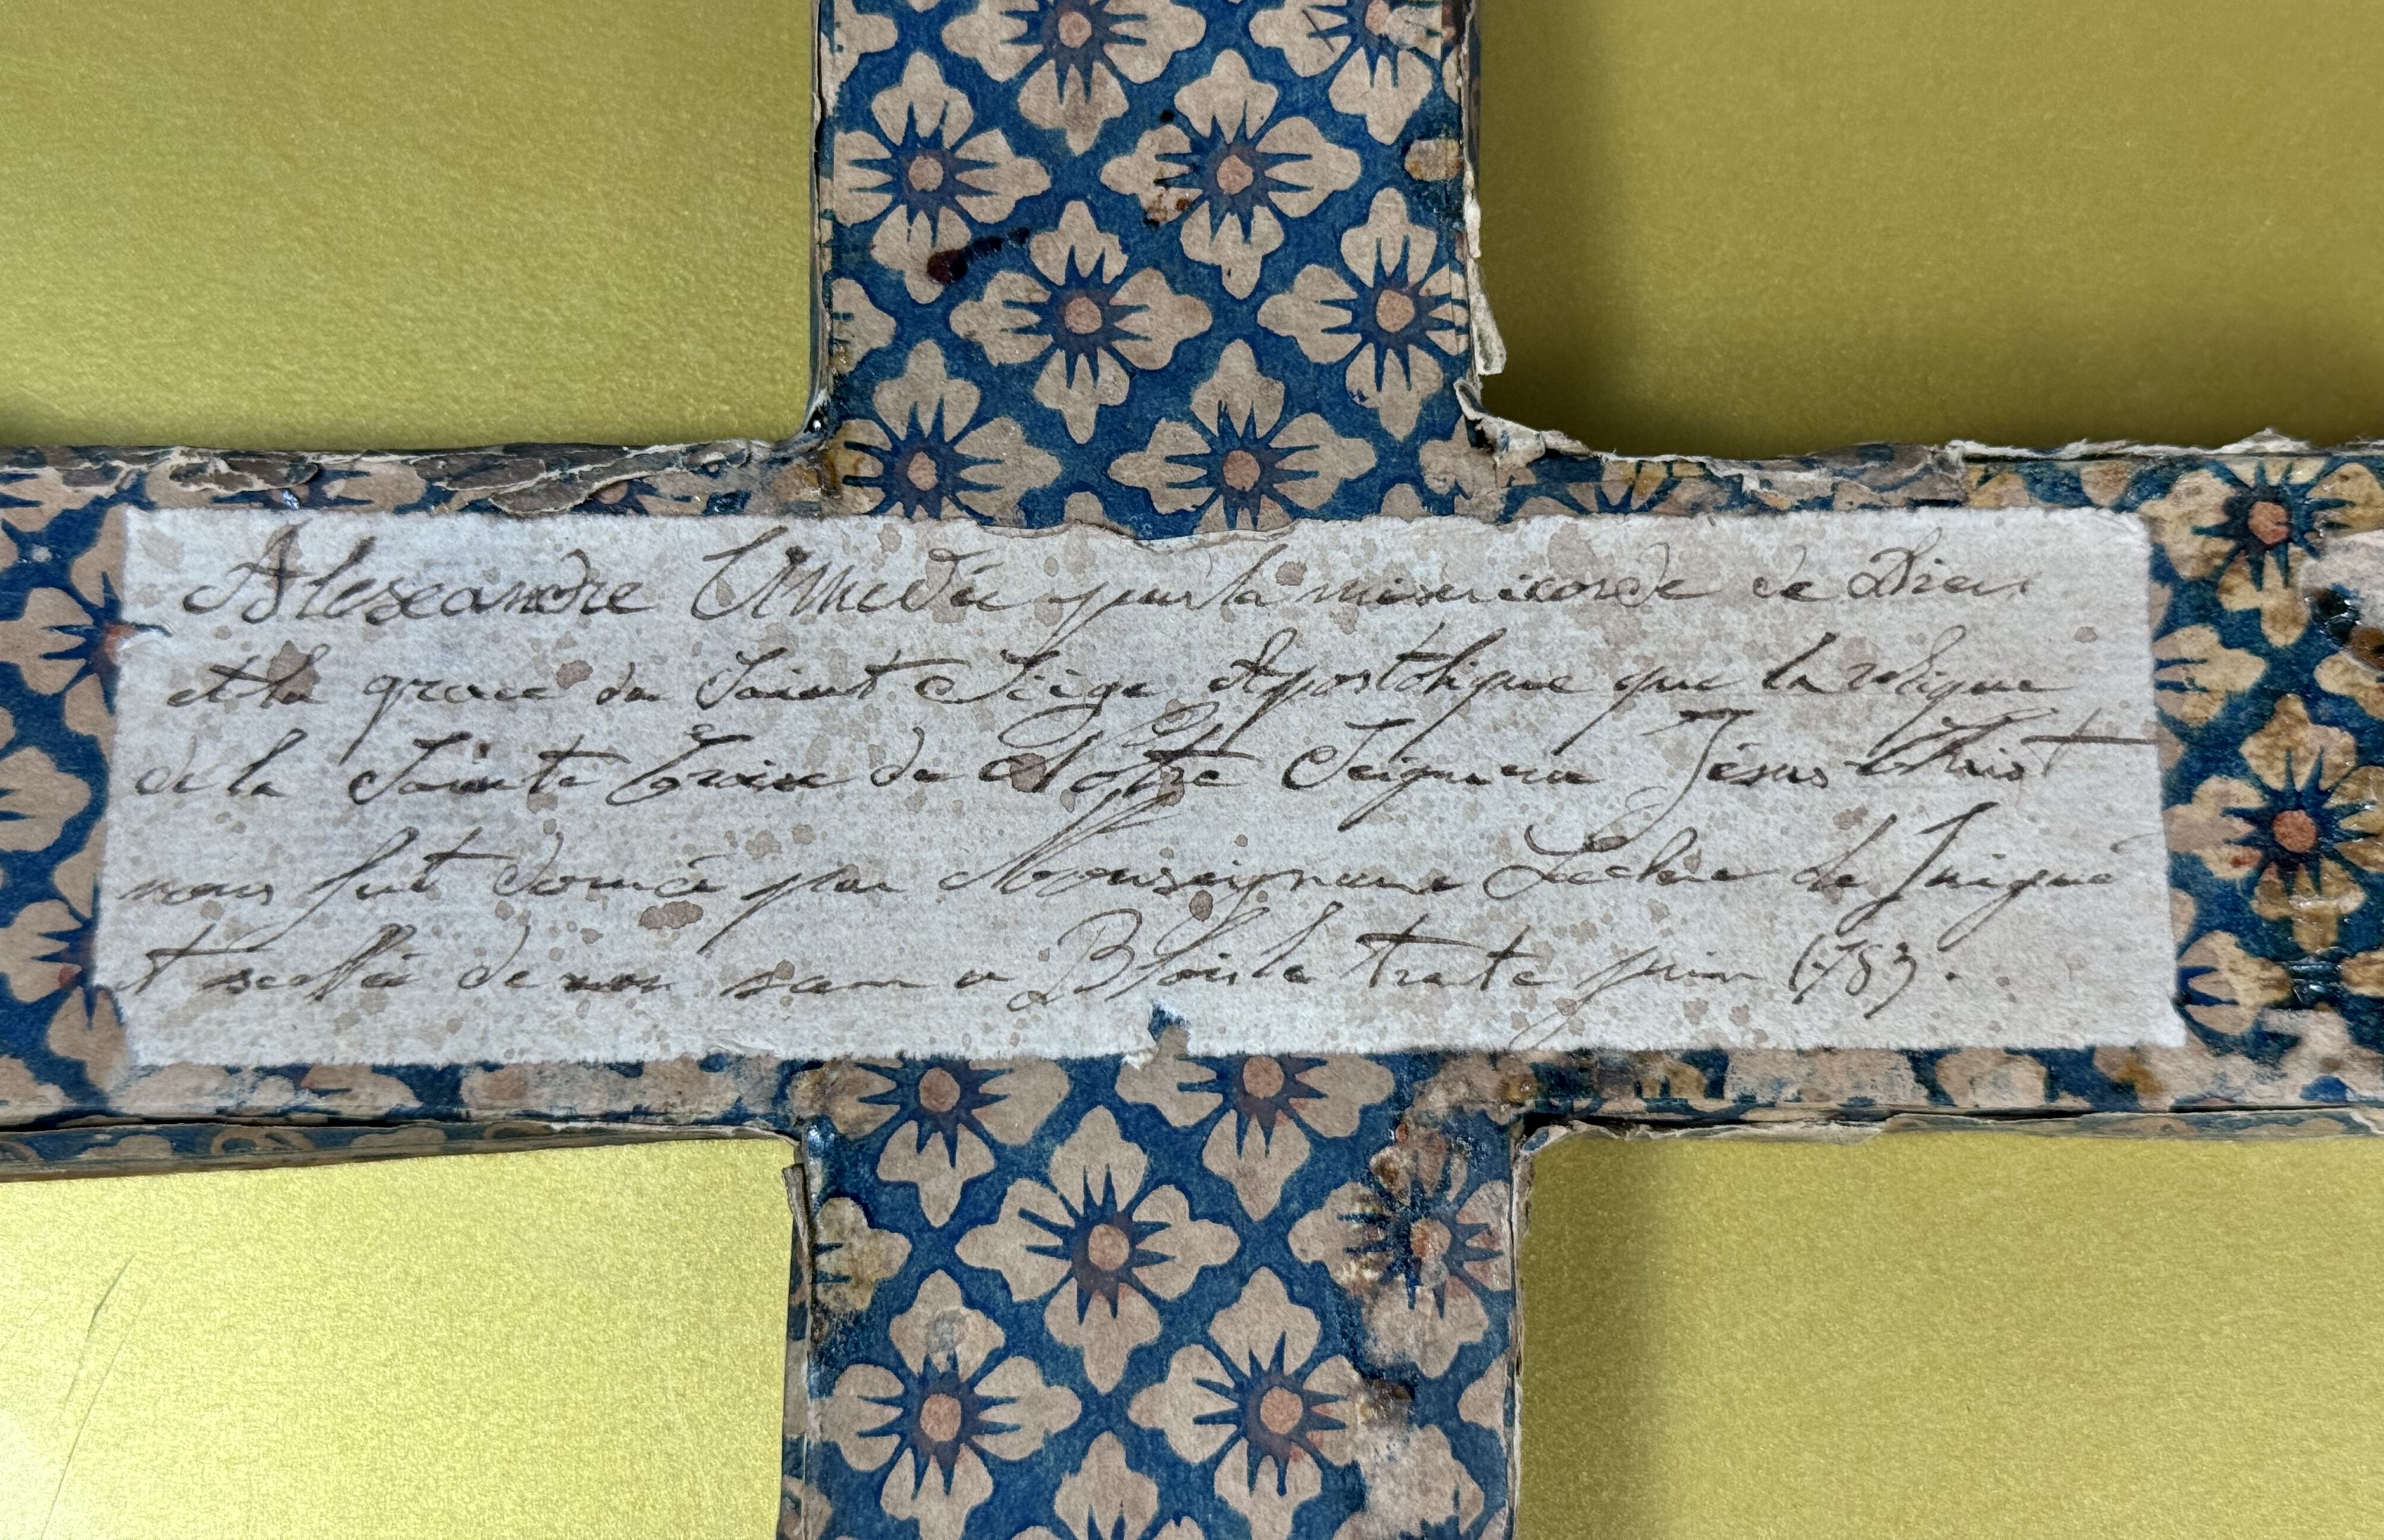 Alexeandre Amedée par la misericorde de Dieu
et la grace du Saint Siège Apostolique que la relique
de la Sainte Croix de Notre Seigneur Jésus Christ
nous fut donnée par Monseigneur Leclerc de Juigné
et scellée de nos a Blois le trente juin 1783.